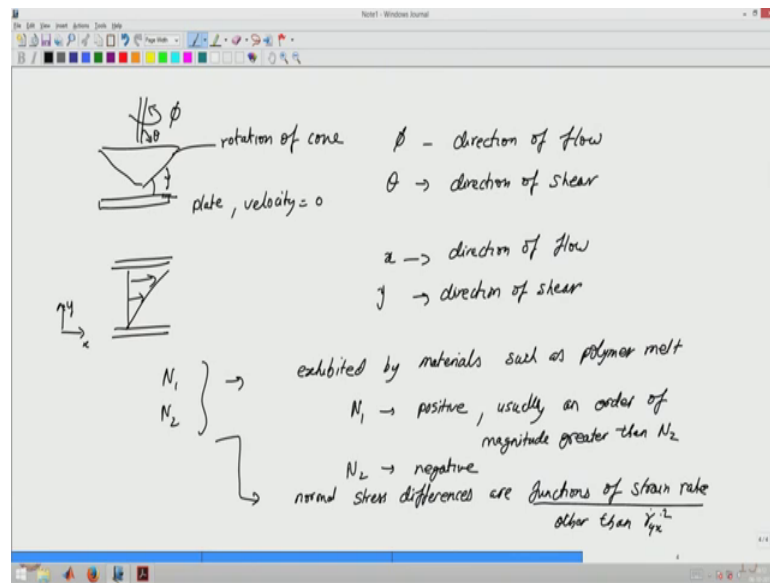 Note1 - Windows Journal
File Edit View Insert Actions Tools Help
Page Width
B I
φ
θ
rotation of cone
φ - direction of flow
plate, velocity = 0
θ → direction of shear
x → direction of flow
y → direction of shear
y
x
N₁
N₂
→ exhibited by materials such as polymer melt
N₁ → positive, usually an order of
magnitude greater than N₂
N₂ → negative
→ normal stress differences are functions of strain rate
other than γ̇yx²
4/4
4